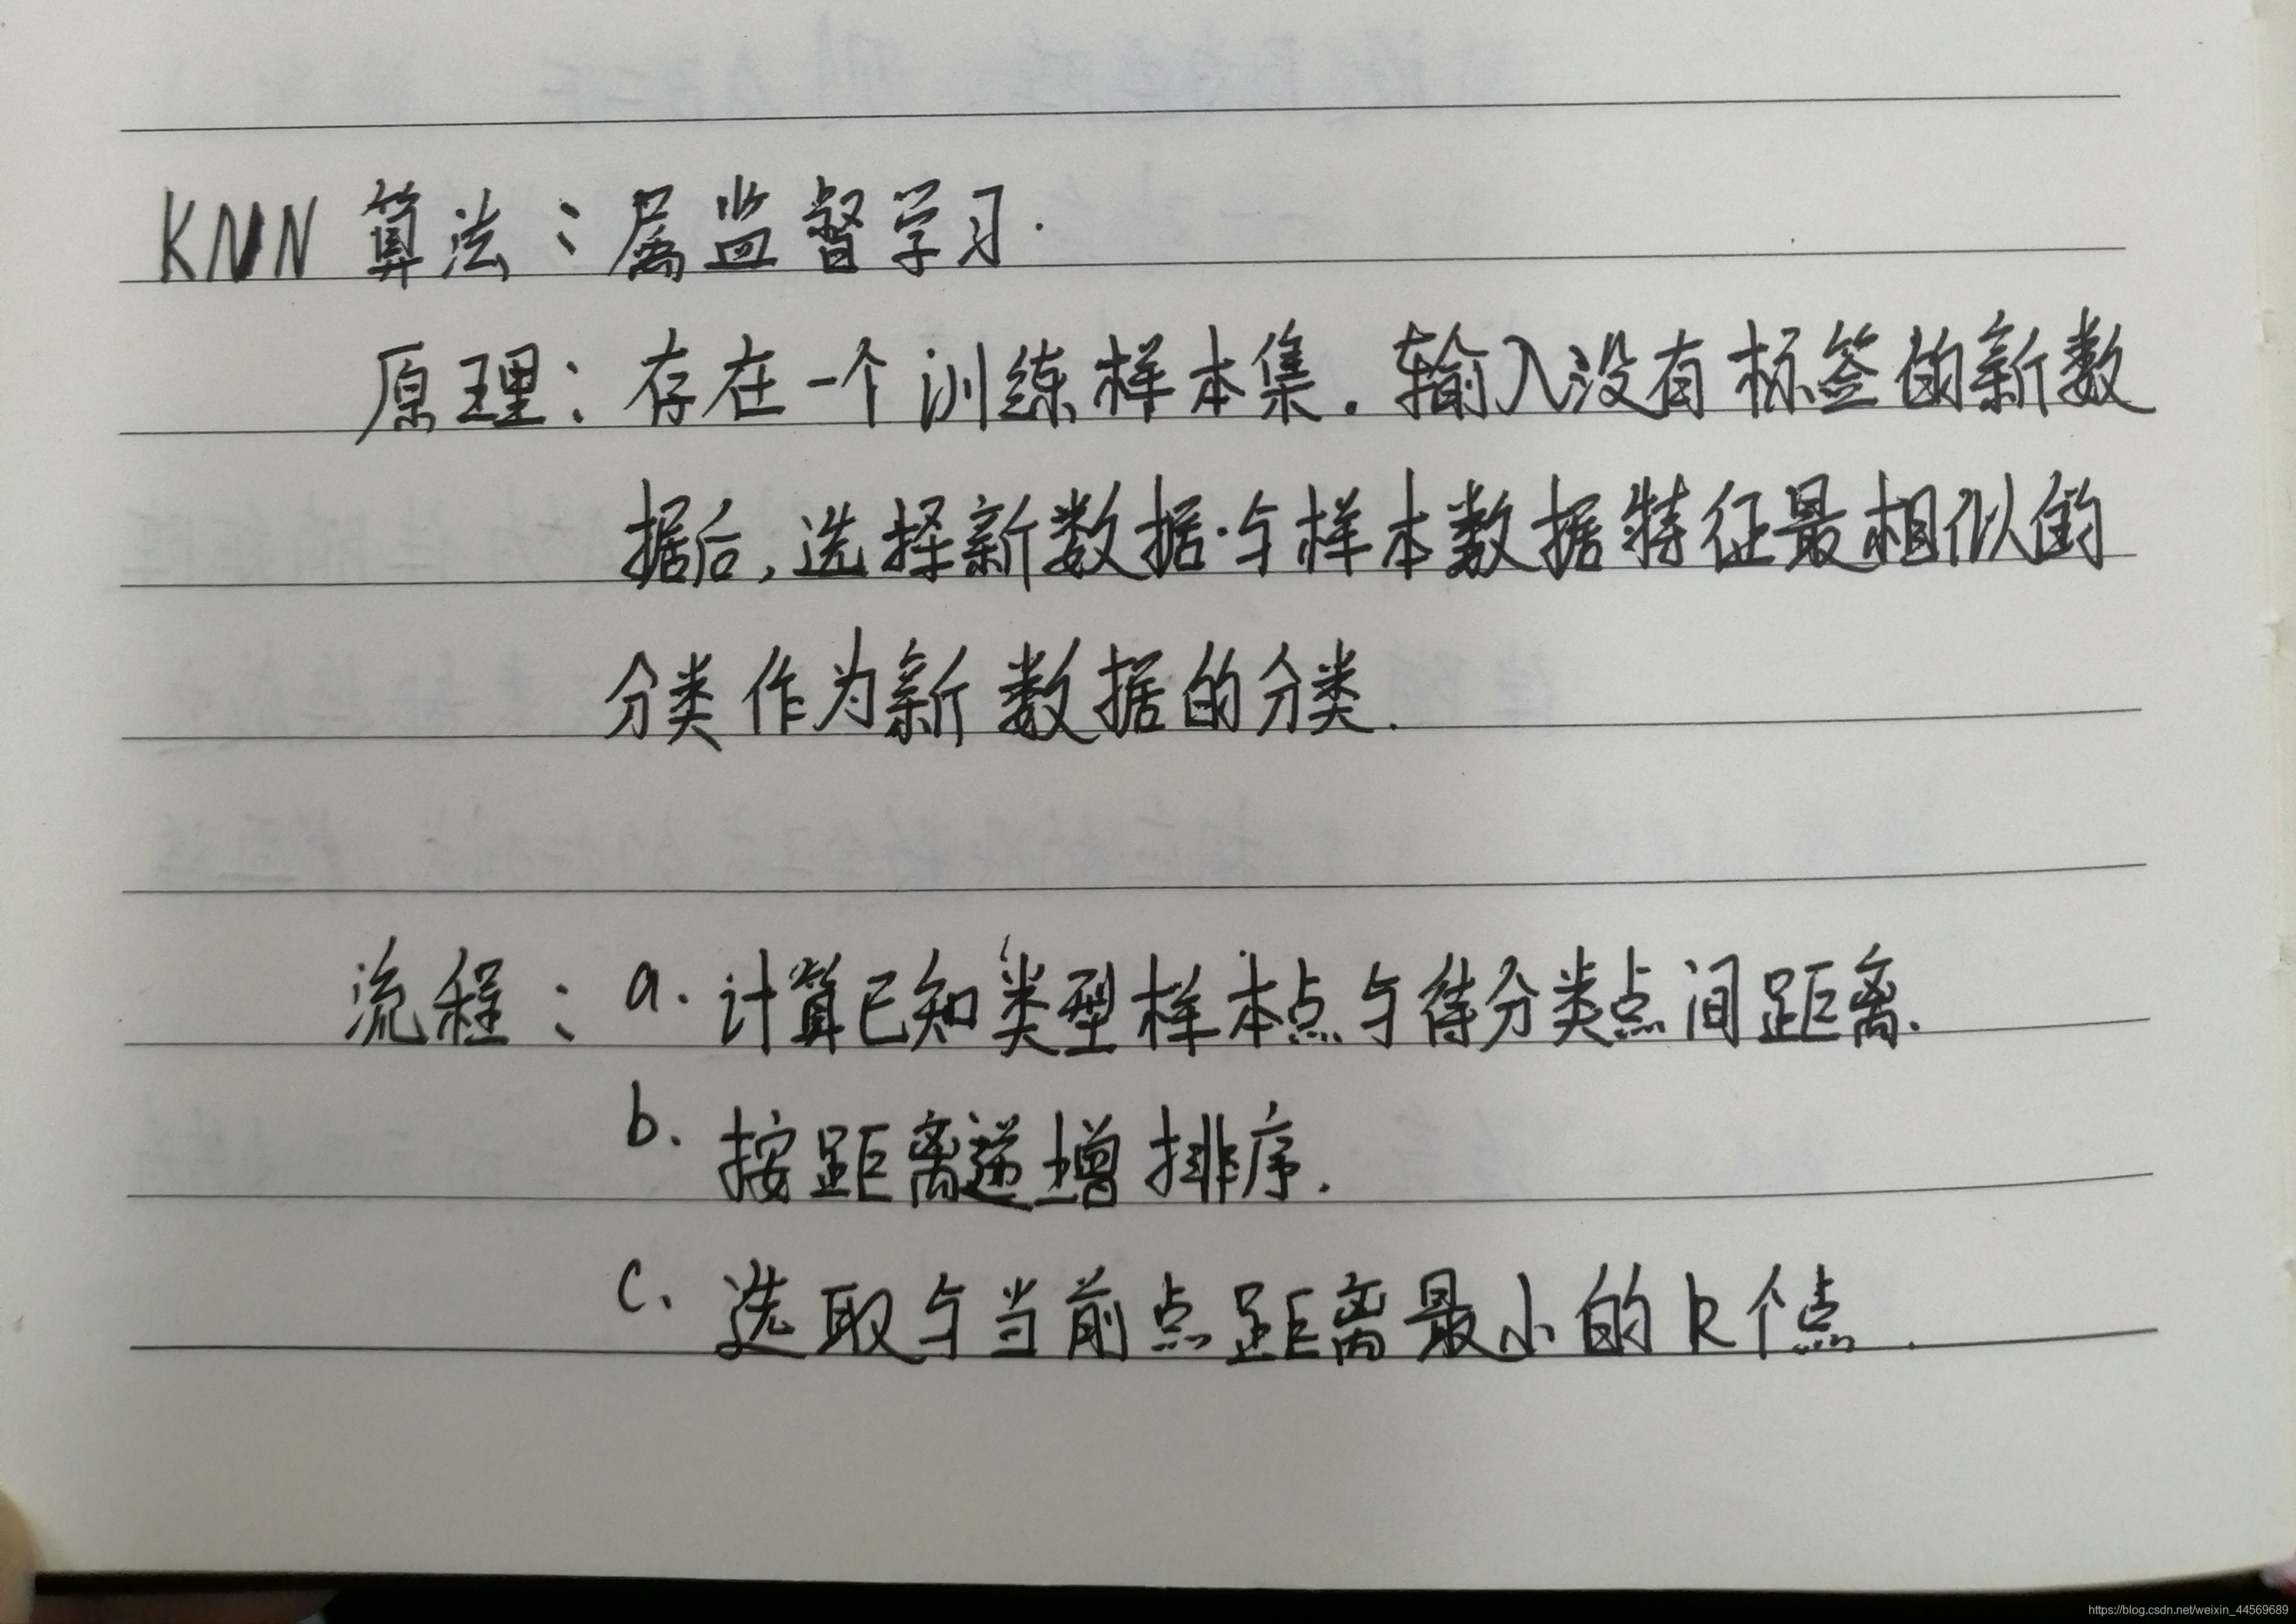 KNN 算法：属监督学习.
原理：存在一个训练样本集. 输入没有标签的新数
据后, 选择新数据与样本数据特征最相似的
分类作为新数据的分类.
流程：a. 计算已知类型样本点与待分类点间距离.
b. 按距离递增排序.
c. 选取与当前点距离最小的k个点.
https://blog.csdn.net/weixin_44569689